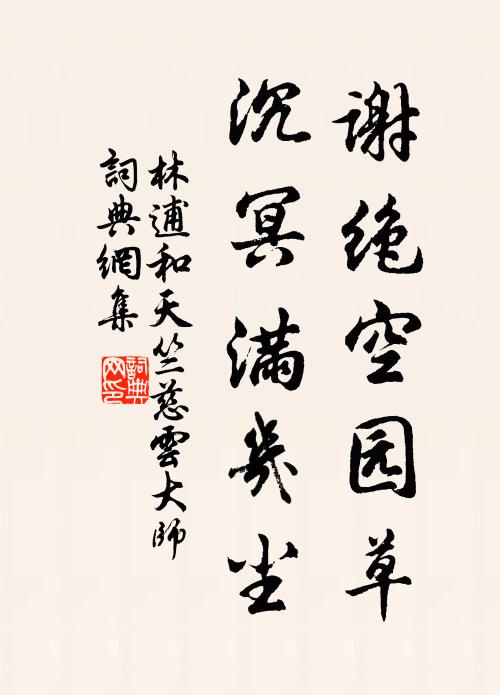 谢绝空园草
沉冥满幾尘
林逋和天竺慈雲大師
詞典網集
詞典
网印